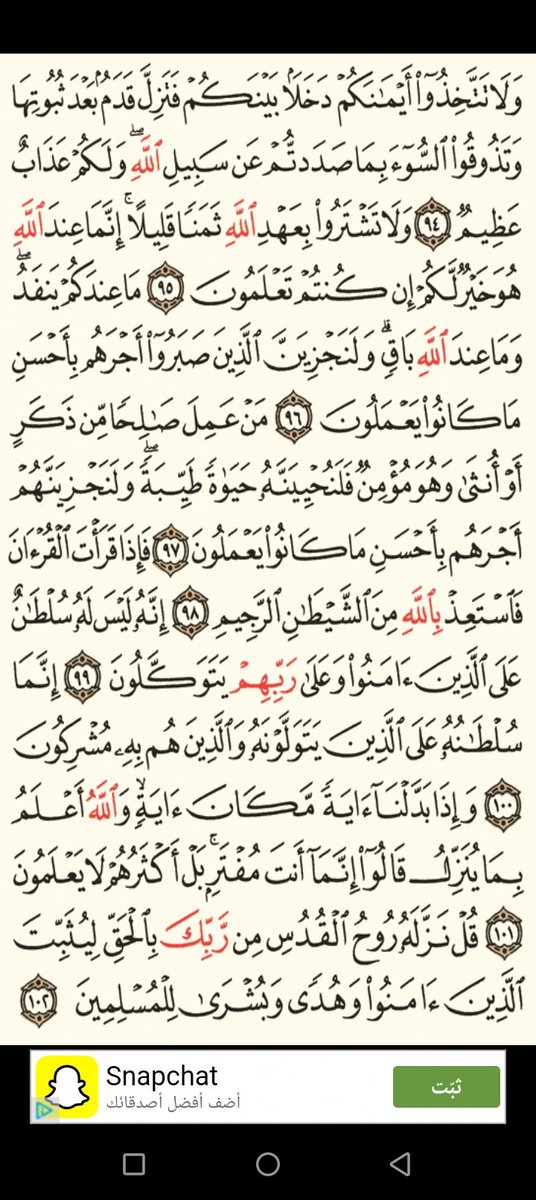 وَلَا تَتَّخِذُوٓا۟ أَيْمَـٰنَكُمْ دَخَلًۢا بَيْنَكُمْ فَتَزِلَّ قَدَمٌۢ بَعْدَ ثُبُوتِهَا
وَتَذُوقُوا۟ ٱلسُّوٓءَ بِمَا صَدَدتُّمْ عَن سَبِيلِ ٱللَّهِ ۖ وَلَكُمْ عَذَابٌ
عَظِيمٌ ٩٤ وَلَا تَشْتَرُوا۟ بِعَهْدِ ٱللَّهِ ثَمَنًا قَلِيلًا ۚ إِنَّمَا عِندَ ٱللَّهِ
هُوَ خَيْرٌ لَّكُمْ إِن كُنتُمْ تَعْلَمُونَ ٩٥ مَا عِندَكُمْ يَنفَدُ ۖ
وَمَا عِندَ ٱللَّهِ بَاقٍ ۗ وَلَنَجْزِيَنَّ ٱلَّذِينَ صَبَرُوٓا۟ أَجْرَهُم بِأَحْسَنِ
مَا كَانُوا۟ يَعْمَلُونَ ٩٦ مَنْ عَمِلَ صَـٰلِحًا مِّن ذَكَرٍ
أَوْ أُنثَىٰ وَهُوَ مُؤْمِنٌ فَلَنُحْيِيَنَّهُۥ حَيَوٰةً طَيِّبَةً ۖ وَلَنَجْزِيَنَّهُمْ
أَجْرَهُم بِأَحْسَنِ مَا كَانُوا۟ يَعْمَلُونَ ٩٧ فَإِذَا قَرَأْتَ ٱلْقُرْءَانَ
فَٱسْتَعِذْ بِٱللَّهِ مِنَ ٱلشَّيْطَـٰنِ ٱلرَّجِيمِ ٩٨ إِنَّهُۥ لَيْسَ لَهُۥ سُلْطَـٰنٌ
عَلَى ٱلَّذِينَ ءَامَنُوا۟ وَعَلَىٰ رَبِّهِمْ يَتَوَكَّلُونَ ٩٩ إِنَّمَا
سُلْطَـٰنُهُۥ عَلَى ٱلَّذِينَ يَتَوَلَّوْنَهُۥ وَٱلَّذِينَ هُم بِهِۦ مُشْرِكُونَ
١٠٠ وَإِذَا بَدَّلْنَآ ءَايَةً مَّكَانَ ءَايَةٍ ۙ وَٱللَّهُ أَعْلَمُ
بِمَا يُنَزِّلُ قَالُوٓا۟ إِنَّمَآ أَنتَ مُفْتَرٍۭ ۚ بَلْ أَكْثَرُهُمْ لَا يَعْلَمُونَ
١٠١ قُلْ نَزَّلَهُۥ رُوحُ ٱلْقُدُسِ مِن رَّبِّكَ بِٱلْحَقِّ لِيُثَبِّتَ
ٱلَّذِينَ ءَامَنُوا۟ وَهُدًى وَبُشْرَىٰ لِلْمُسْلِمِينَ ١٠٢
Snapchat
أضف أفضل أصدقائك
ثبّت